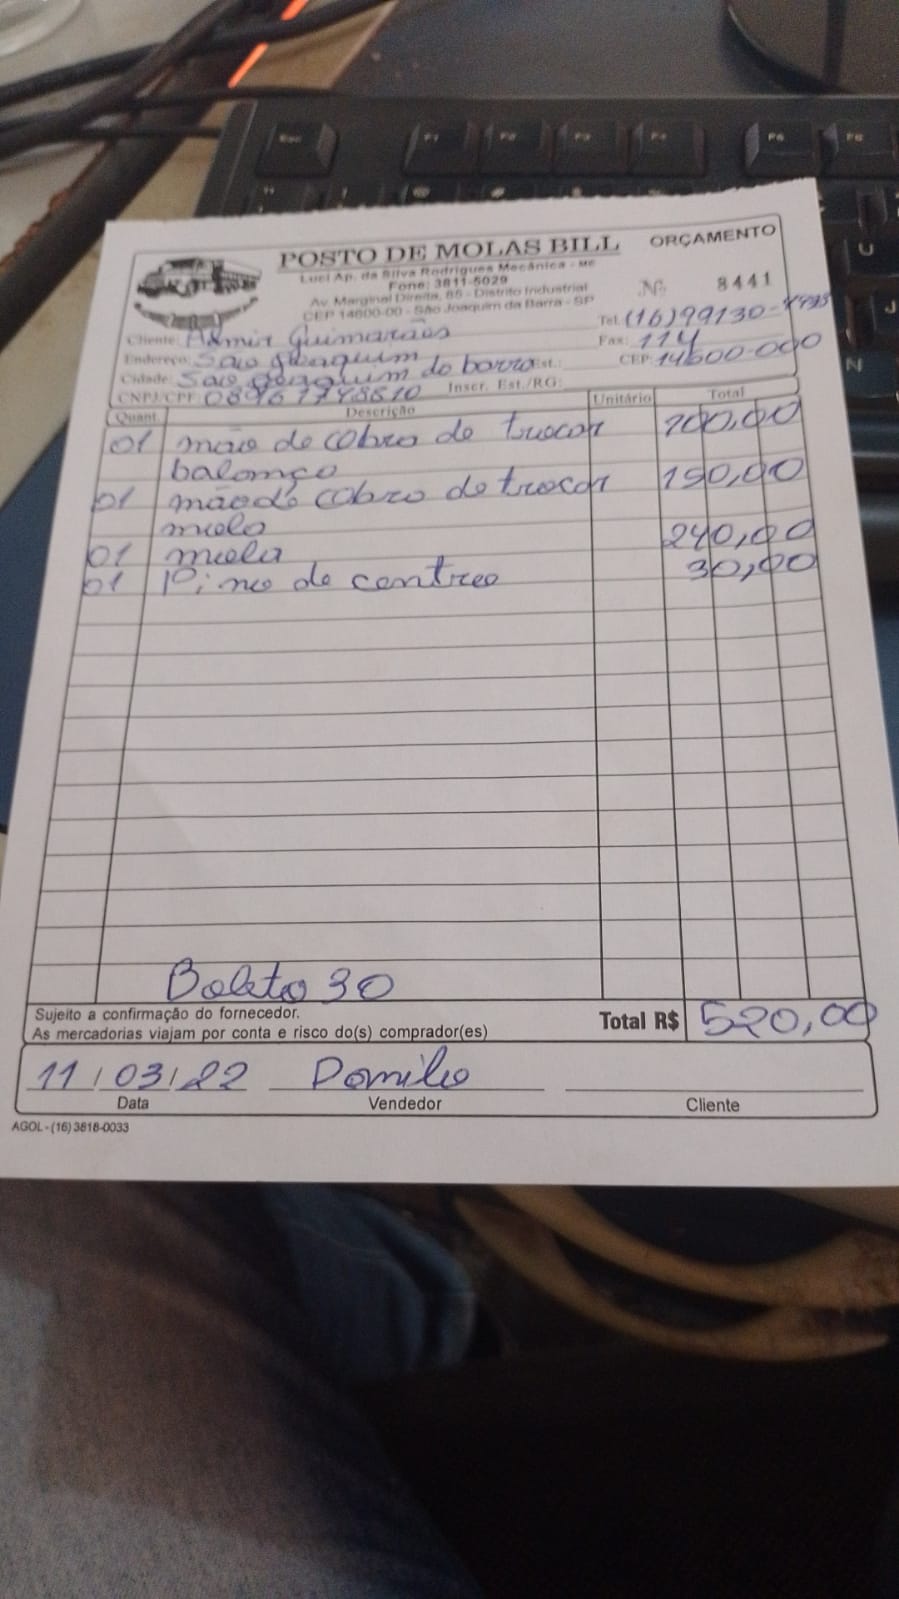 POSTO DE MOLAS BILL
ORÇAMENTO
Luci Ap. da Silva Rodrigues Mecânica - ME
Fone: 3811-5029
Av. Marginal Direita, 85 - Distrito Industrial
CEP 14600-00 - São Joaquim da Barra - SP
Nº 8441
Cliente: Admir Guimarães Tel. (16)99130-
Endereço: São Joaquim Fax: 114
Cidade: São Joaquim da barra Est.: CEP: 14600-000
CNPJ/CPF: 08967748810 Inscr. Est./RG:
Quant. Descrição Unitário Total
01 mão de obra de trocar 100,00
balanço
01 mão de obra de trocar 150,00
mola
01 mola 240,00
01 Pino de centro 30,00
Boleto 30
Sujeito a confirmação do fornecedor.
As mercadorias viajam por conta e risco do(s) comprador(es)
Total R$ 520,00
11/03/22 Danilo
Data Vendedor Cliente
AGOL - (16) 3818-0033
Esc F1 F2 F3 F4 F5 F6
U
J
N